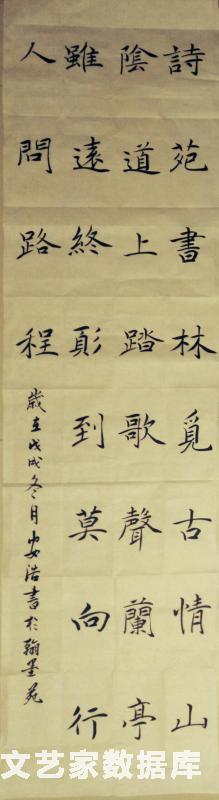 詩苑書林覓古情山
陰道上踏歌聲蘭亭
雖遠終須到莫向行
人問路程
歲在戊戌冬月安浩書於翰墨苑
文艺家数据库